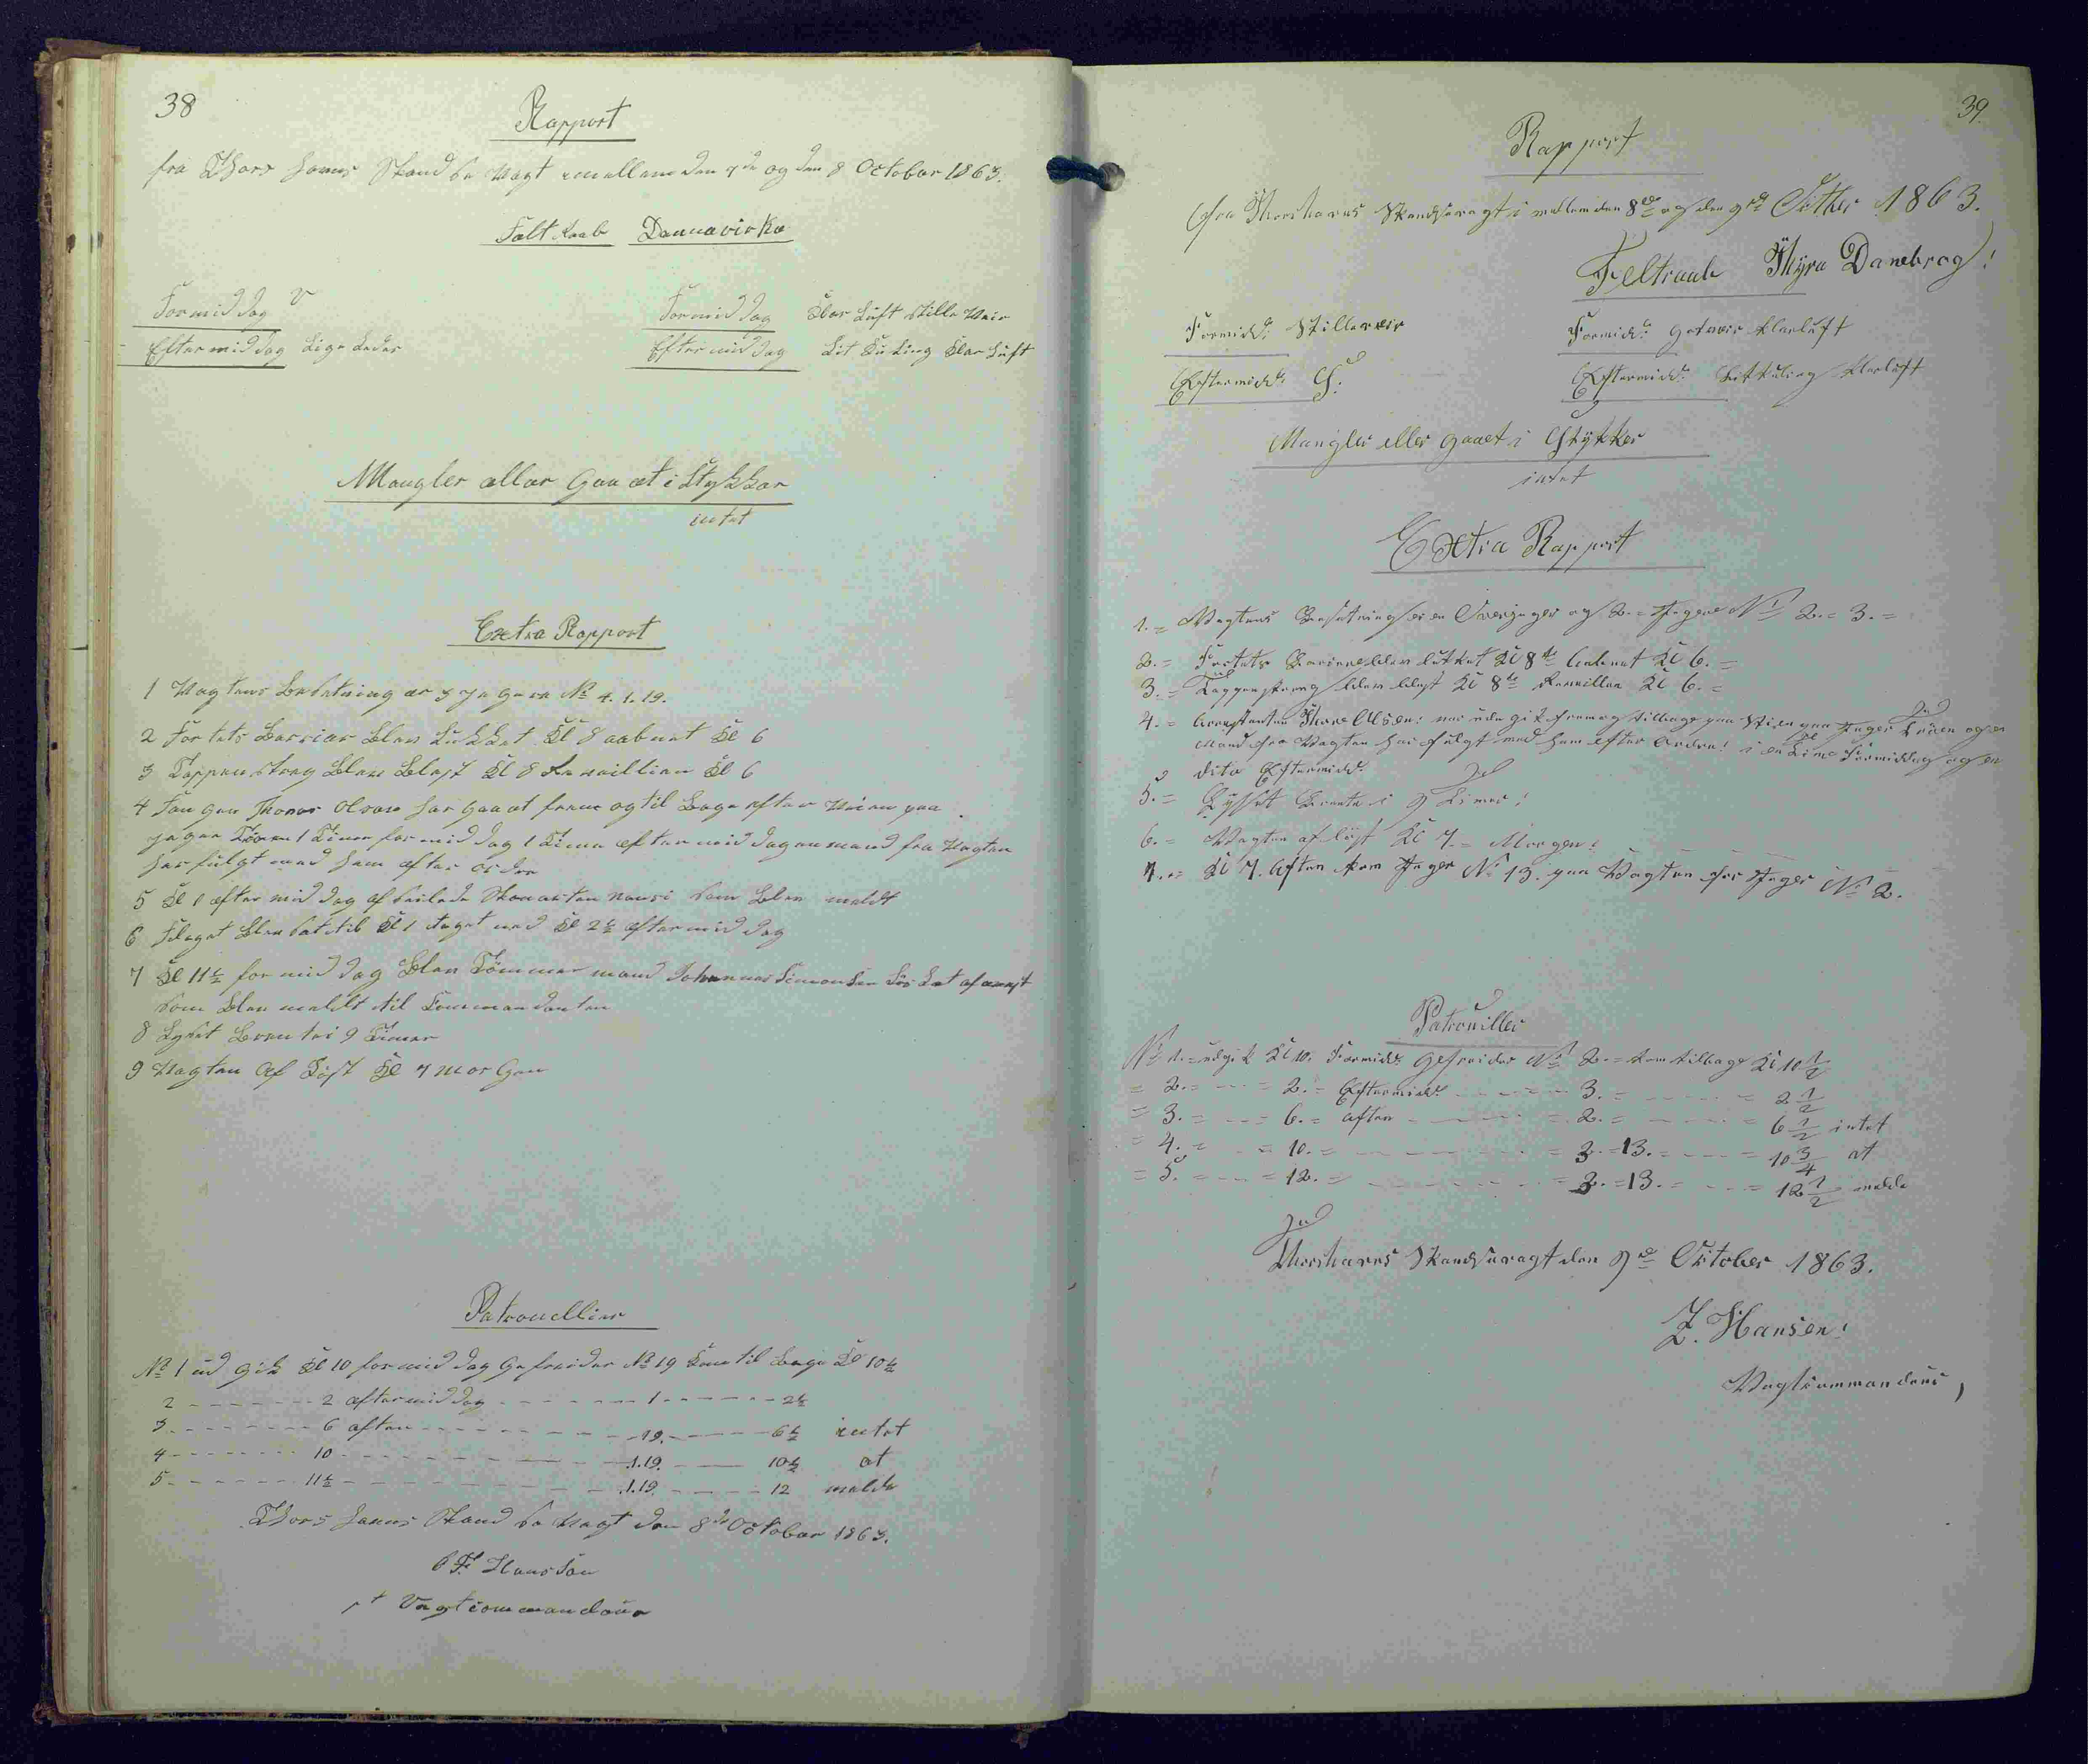 38
Rapport
fra Thors havns Skandse Vagt imellem den 7de og den 8 October 1863.
Feltraab Dannevirke
Formiddag V
Eftermiddag Ligeledes
Formiddag Klar Luft stille Veir
Eftermiddag Lit Kuling Klar Luft
Mangler eller Gaaet i Stykker
intet
Extra Rapport
1 Vagtens Besetning er 3 Jegere No 4. 1. 19.
2 Fortets Barrier blev Lukket Kl 8 aabnet Kl 6
3 Tappenstreg Blev Blæst Kl 8 Reveillien Kl 6
4 Fangen Thomas Olsen har Gaaet frem og til Bage efter Veien paa
1 Time formiddag 1 Time eftermiddag en mand fra Vagten
har fulgt med ham efter order
5 Kl 1 eftermiddag af seilede Skonnerten som blev meldt
6 Flaget blev sat til Kl 1 taget ned Kl 2½ eftermiddag
7 Kl 11½ formiddag blev Tømmermand Johannes Simonsen af arrest
som blev meldt til Commandanten
8 Lyset Brente i 9 Timer
9 Vagten Af Løst Kl 7 Morgen
Patrouellier
No 1 ud gik Kl 10 formiddag Gefreider No 19 Kom til Bage Kl 10½
2 - - - 2 eftermiddag - - - 1 - - - 2½
3 - - - 6 aften - - - 19. - - - 6½ intet
4 - - - 10 - - - 1.19. - - - 10½ at
5 - - - 11½ - - - 1.19. - - - 12 melde
Thors havns Skandse Vagt den 8de October 1863.
Hansen
Vagtcommandeur
39
Rapport
fra Thorshavns Skandsevagt i mellem den 8de og den 9de Octber 1863.
Feltraab Thyra Danebrog!
Formidd: Stilleveir
Eftermidd:
Formidd: Gotveir klarluft
Eftermidd: Litkuling klarluft
Mangler eller gaaet i Stykker
intet
Extra Rapport
1. = Vagtens Besetning er en Overjeger og 2. = Jegere No 2. = 3. =
2. = Fortets Barriere blev lukket Kl 8te aabnet Kl 6. =
3. = Tappenstreg blev blæst Kl 8te Reveillen Kl 6. =
4. = Arrestanten Olsen: frem og tilbage paa Jeger og en
Mand fra Vagten har fulgt med ham efter Ordre! i en Time Formiddag og en
dito Eftermidd.
5. = Lysset Brente i 9 Timer!
6. = Vagten af løst Kl 7. = Morgen!
7. = Kl 7. Aften kom Jeger No 13. paa Vagten for Jeger No 2.
Patrouiller
No 1. = udgik Kl 10. Formidd: Gefreider No 2. = kom tilbage Kl 10 1/2
= 2. = - - - = 2. = Eftermidd: - - - 3. = - - - = 2 1/2
= 3. = - - - = 6. = aften - - - = 2. = - - - = 6 1/2 intet
= 4. = - - = 10. = - - - = 3. = 13. = - - - = 10 3/4 at
= 5. = - - - = 12. = - - - = 3. = 13. = - - - = 12 1/2 melde
Thorshavns Skandsevagt den 9de October 1863.
Z. Hansen!
Vagtcommandeur,